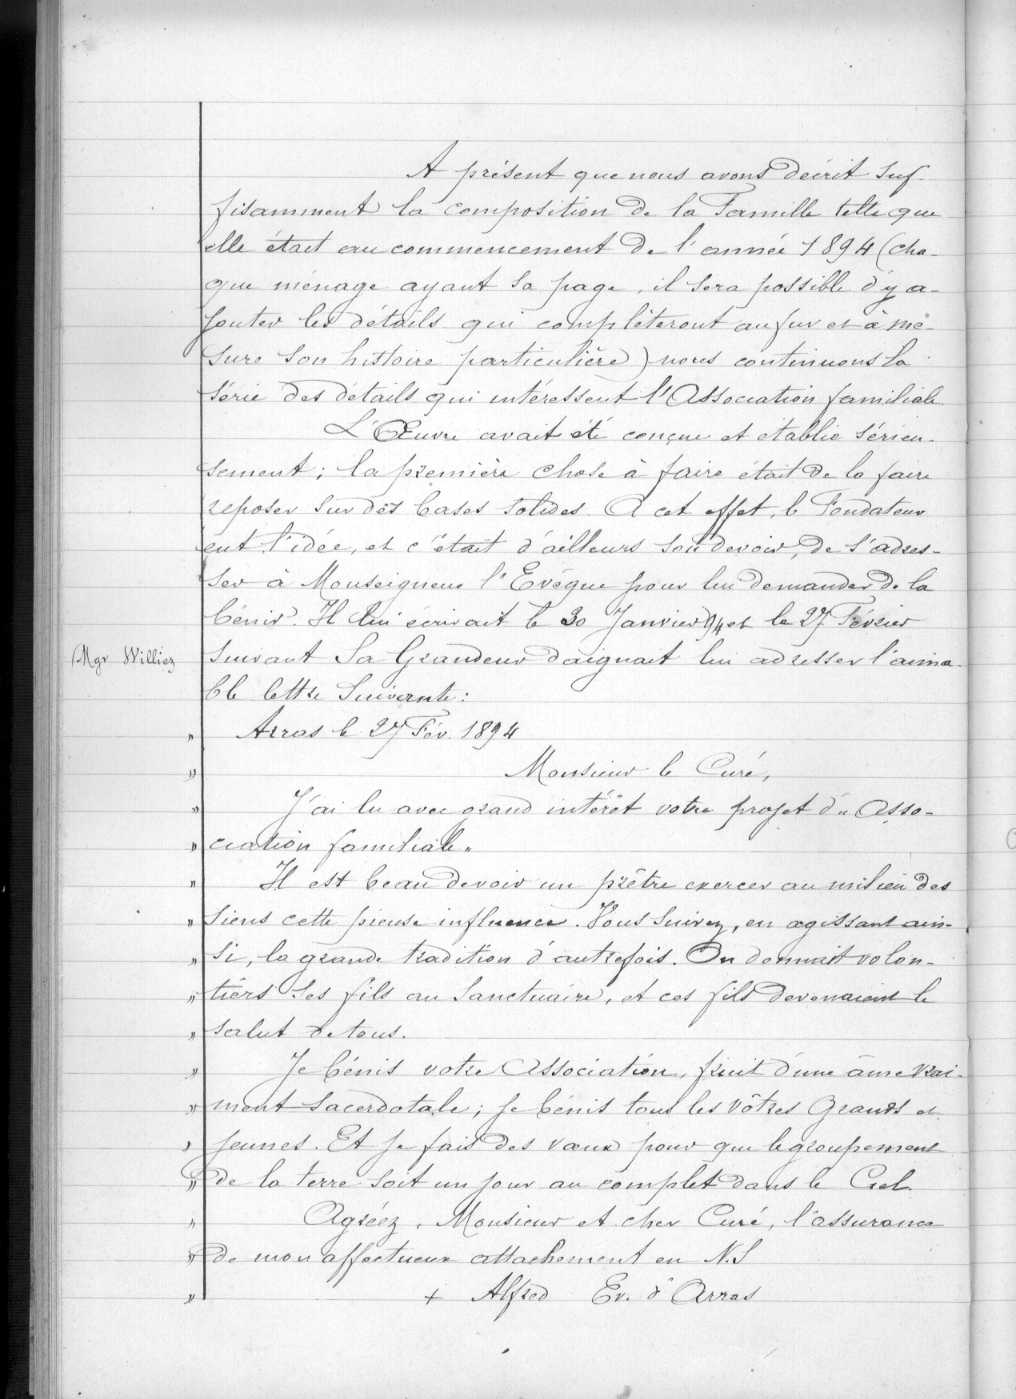 A présent que nous avons décrit suf-
fisamment la composition de la Famille telle que
elle était au commencement de l'année 1894 (cha-
que ménage ayant sa page, il sera possible d'y a-
jouter les détails qui complèteront au fur et à me-
sure son histoire particulière) nous continuons la
série des détails qui intéressent l'Association familiale
L'Œuvre avait été conçue et établie sérieu-
sement; la première chose à faire était de la faire
reposer sur des bases solides. A cet effet, le Fondateur
eut l'idée, et c'était d'ailleurs son devoir, de s'adres-
ser à Monseigneur l'Evêque pour lui demander de la
bénir. Il lui écrivait le 30 Janvier 94 et le 27 Février
Mgr Williez suivant Sa Grandeur daignait lui adresser l'aima-
ble lettre suivante:
" Arras le 27 Fév. 1894
" Monsieur le Curé,
" J'ai lu avec grand intérêt votre projet d'" Asso-
" ciation familiale"
" Il est beau de voir un prêtre exercer au milieu des
" siens cette pieuse influence. Vous suivez, en agissant ain-
" si, la grande tradition d'autrefois. On donnait volon-
" tiers ses fils au Sanctuaire, et ces fils devenaient le
" salut de tous.
" Je bénis votre Association, fruit d'une âme vrai-
" ment sacerdotale; je bénis tous les vôtres grands et
" jeunes. Et je fais des vœux pour que le groupement
" de la terre soit un jour au complet dans le Ciel.
" Agréez, Monsieur et cher Curé, l'assurance
" de mon affectueux attachement en N.S
" + Alfred Ev. d'Arras